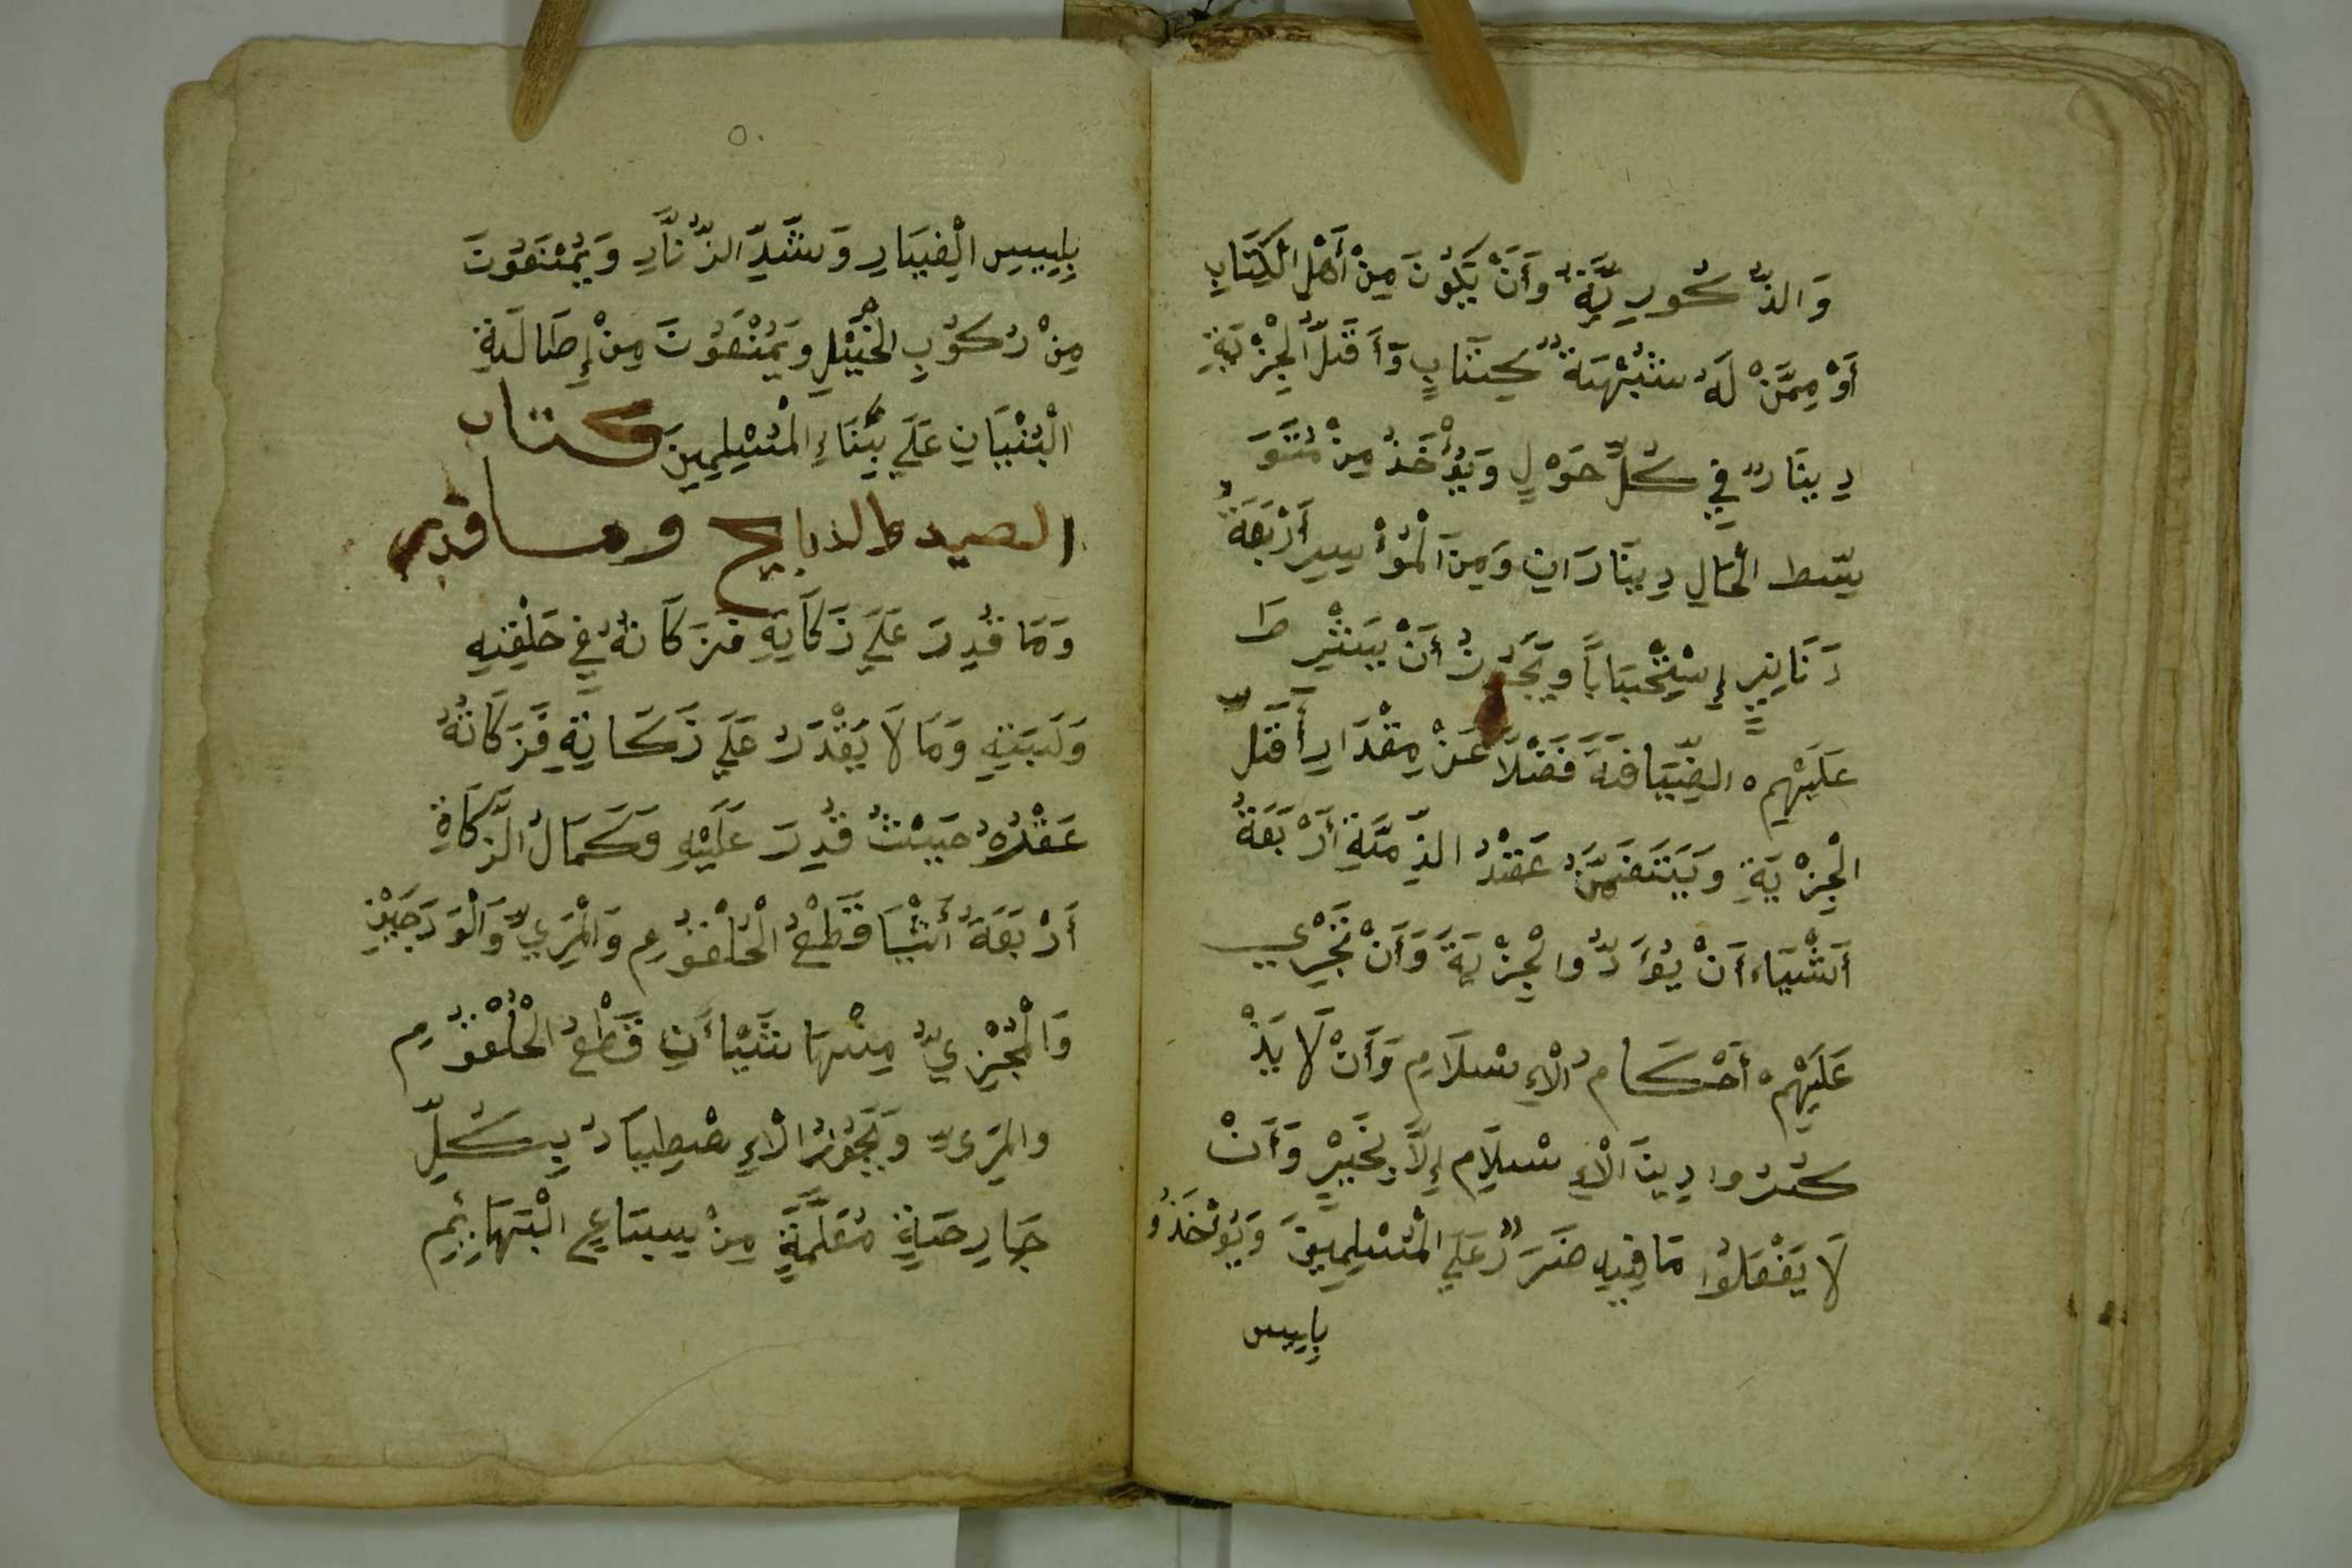 وَالذُّكُورِيَّةُ وَأَنْ يَكُونَ مِنْ أَهْلِ الْكِتَابِ
أَوْ مِمَّنْ لَهُ شُبْهَةُ كِتَابٍ وَأَقَلُّ الْجِزْيَةِ
دِينَارٌ فِي كُلِّ حَوْلٍ وَيُؤْخَذُ مِنْ مُتَوَ
سِّط الْحَالِ دِينَارَانِ وَمِنَ الْمُؤْسِرِ أَرْبَعَةُ
دَنَانِيرَ إِسْتِحْبَاباً وَيَجُوزُ أَنْ يَشْتَرِطَ
عَلَيْهِمْ الضِّيَافَةَ فَضْلاً عَنْ مِقْدَارِ أَقَلِّ
الْجِزْيَةِ وَيَتَضَمَّنُ عَقْدُ الذِّمَّةِ أَرْبَعَةُ
أَشْيَاءَ أَنْ يُؤَدُّوا الْجِزْيَةَ وَأَنْ تَجْرِي
عَلَيْهِمْ أَحْكَامُ الْإِسْلَامِ وَأَنْ لَا يَذْ
كُرُوا دِينَ الْإِسْلَامِ إِلَّا بِخَيْرٍ وَأَنْ
لَا يَفْعَلُوا مَا فِيهِ ضَرَرٌ عَلَي الْمُسْلِمِينَ وَيُؤْخَذُو
بِلبس
٥٠
بِلِبسِ الْغِيَارِ وَشَدِّ الزُّنَّارِ وَيُمْنَعُونَ
مِنْ رُكُوبِ الْخَيْلِ وَيُمْنَعُونَ مِنْ إِطَالَةِ
الْبُنْيَانِ عَلَي بِنَاءِ الْمُسْلِمِينَ كتاب
الصيد والذبايح وما قدر
وَمَا قُدِرَ عَلَي زَكَاتِهِ فَزَكَاتُهُ فِي حَلْقِهِ
وَلَبَتِهِ وَمَا لَا يُقْدَرُ عَلَي زَكَاتِهِ فَزَكَاتُهُ
عَقْرُهُ حَيْثُ قُدِرَ عَلَيْهِ وَكَمَالُ الزَّكَاةِ
أَرْبَعَةُ أَشْيَا قَطْعُ الْحُلْقُومِ وَالْمَرِيِّ وَالْوَدَجَيْنِ
وَالْمُجْزِيُّ مِنْهَا شَيْأَنِ قَطْعُ الْحُلْقُومِ
والمَرِىِّ وَيَجُوزُ الْاِصْطِيَادُ بِكُلِّ
جَارِحَةٍ مُعَلَّمَةٍ مِنْ سِبَاعِ الْبَهَائِمِ